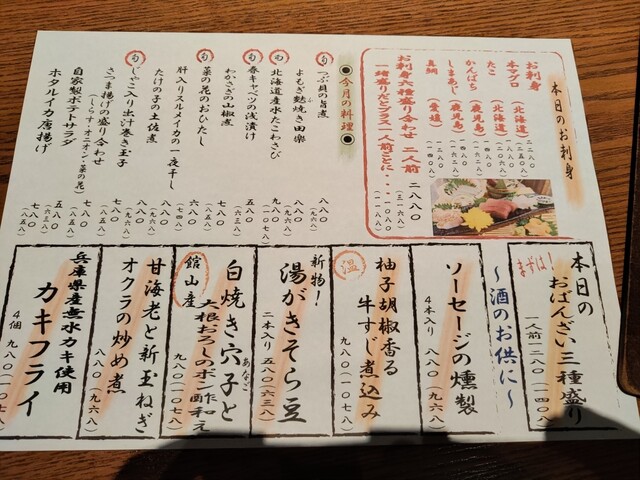 本日のお刺身
お刺身
本マグロ
たこ (北海道)
かんぱち (鹿児島)
しまあじ (鹿児島)
真鯛 (愛媛)
お刺身六種盛り合わせ 二人前 二八八〇 (三一六八)
一緒盛りだとプラス一人前ごとに・・・
●今月の料理●
旬 つぶ貝の旨煮 八八〇 (九六八)
よもぎ麩焼き田楽 八八〇 (九六八)
旬 北海道産水たこわさび 九八〇
旬 春キャベツの浅漬け 五八〇 (六三八)
わかさぎの山椒煮 七八〇 (八五八)
旬 菜の花のおひたし 六八〇 (七四八)
肝入りスルメイカの一夜干し
たけの子の土佐煮 八八〇 (九六八)
旬 じゃこ入り出汁巻き玉子 七八〇
さつま揚げの盛り合わせ
(しらす・オニオン・菜の花) 七八〇 (八五八)
自家製ポテトサラダ 五八〇
ホタルイカ唐揚げ 七八〇 (八五八)
まずは!
本日の
おばんざい三種盛り
一人前
〜酒のお供に〜
ソーセージの燻製
4本入り 八八〇 (九六八)
温
柚子胡椒香る
牛すじ煮込み
九八〇 (一〇七八)
新物!
湯がきそら豆
二本入り 五八〇 (六三八)
館山産
白焼き穴子と
あなご
大根おろしのポン酢和え
九八〇 (一〇七八)
甘海老と新玉ねぎ
オクラの炒め煮
八八〇 (九六八)
兵庫県産無水カキ使用
カキフライ
4個 九八〇 (一〇七八)